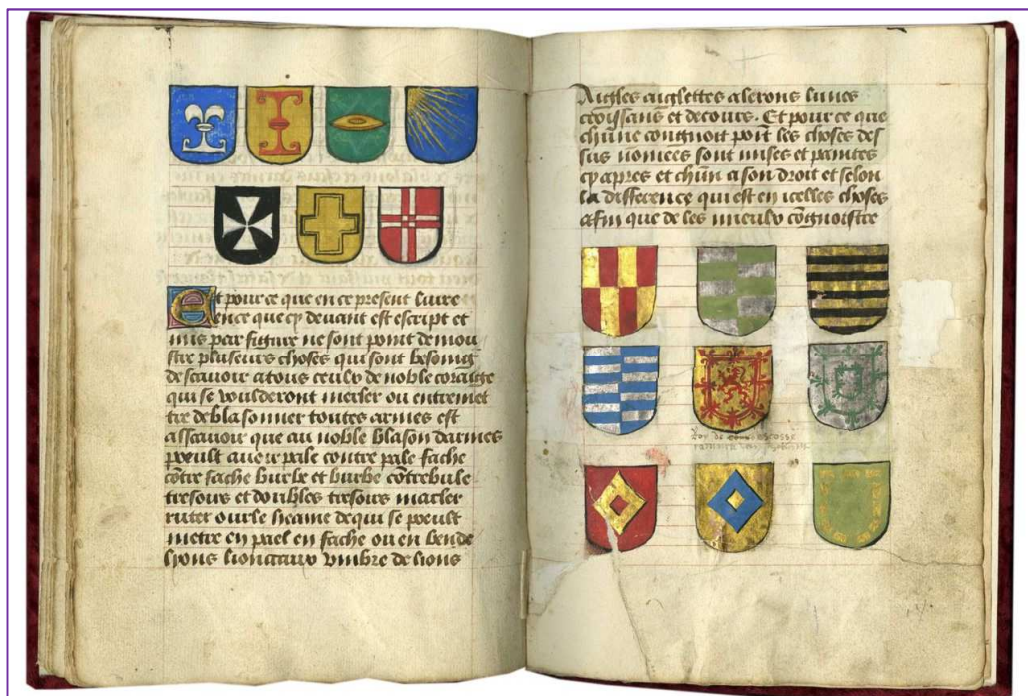 Et pour ce que en ce present livre
ence que cy devant est escript et
mis par figure ne sont point demou
stre pluseurs choses qui sont besoing
de scavoir a tous ceulx de noble coraige
qui se voulderont mesler ou entremet
tre de blasonner toutes armes est
asscavoir que au noble blason darmes
poeult avoir pale contre pale fache
cōtre fache burle et burbe cōtrebule
tresours et doubles tresours macler
ruter ourle de qui se poeult
metre en pael en fache ou en bende
lyons vmbre de lions
Aigles aiglettes alerons lunes
croissans et decours. Et pour ce que
chūne congnoit point les choses des
sus nomees sont mises et paintes
cy apres et chūn a son droit et selon
la difference qui est en icelles choses
afin que de les mieulx cōgnoistre
roy de escosse